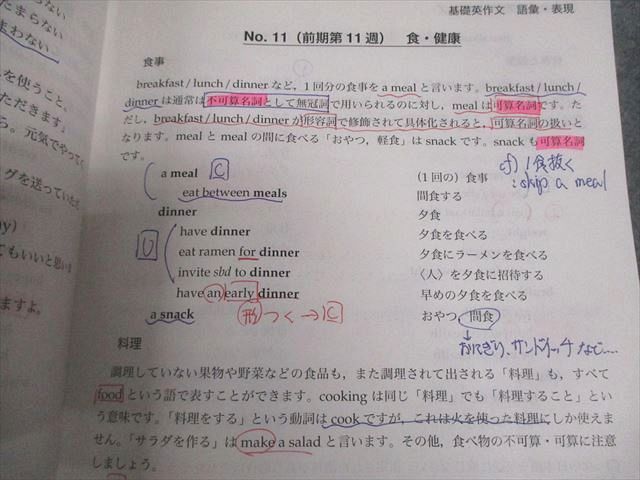 基礎英作文　語彙・表現
No. 11（前期第11週）　食・健康
食事
breakfast / lunch / dinner など，1回分の食事を a meal と言います。breakfast / lunch /
dinner は通常は不可算名詞として無冠詞で用いられるのに対し，meal は可算名詞です。た
だし，breakfast / lunch / dinner が形容詞で修飾されて具体化されると，可算名詞の扱いと
なります。meal と meal の間に食べる「おやつ，軽食」は snack です。snack も可算名詞
です。
cf) 1食抜く
: skip a meal
a meal C （1回の）食事
eat between meals 間食する
dinner 夕食
U
have dinner 夕食を食べる
eat ramen for dinner 夕食にラーメンを食べる
invite sbd to dinner 〈人〉を夕食に招待する
have an early dinner 早めの夕食を食べる
a snack 形つく→C おやつ，間食
おにぎり、サンドイッチなど…
料理
調理していない果物や野菜などの食品も，また調理されて出される「料理」も，すべて
food という語で表すことができます。cooking は同じ「料理」でも「料理すること」とい
う意味です。「料理をする」という動詞は cook ですが，これは火を使った料理にしか使えま
せん。「サラダを作る」は make a salad と言います。その他，食べ物の不可算・可算に注意
しましょう。
たまらない
まわない
を使うこと，
ただきます」
ら。元気でやって
グを送っていた
てもいいと思いま
ますよ。